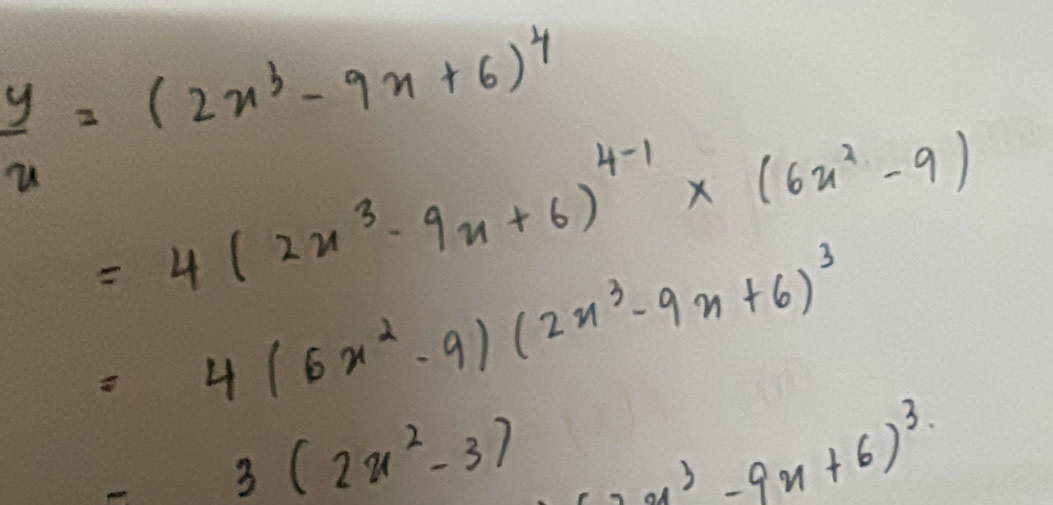 y/x = (2x³ - 9x + 6)⁴
= 4(2x³ - 9x + 6)⁴⁻¹ × (6x² - 9)
= 4(6x² - 9)(2x³ - 9x + 6)³
= 3(2x² - 3) x³ - 9x + 6)³.